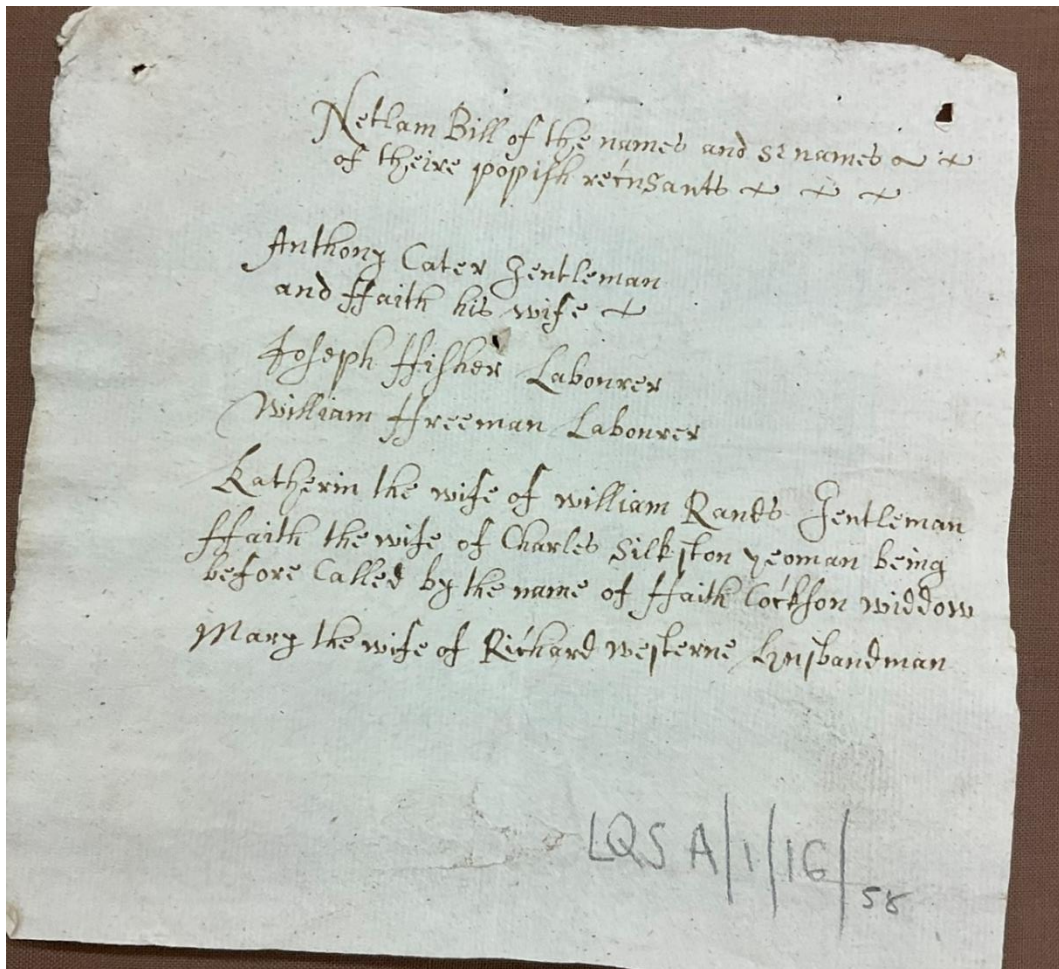 Netlam Bill of the names and s2names
of theire popish recusants
Anthony Cater Gentleman
and ffaith his wife
Joseph ffisher Labourer
William ffreeman Labourer
Katherin the wife of william Rands Gentleman
ffaith the wife of Charles Silkston yeoman being
before Called by the name of ffaith Cockson widdow
Mary the wife of Richard westerne husbandman
LQS A/1/16/
58